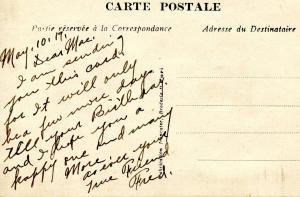 CARTE POSTALE
Partie réservée à la Correspondance
Adresse du Destinataire
May. 10. 17.
Dear Mae.
I am sending
you this card.
for it will only
be a few more days
till your Birthday.
and I wish you a
happy one and many
More.
as ever your
true Friend
Fred.